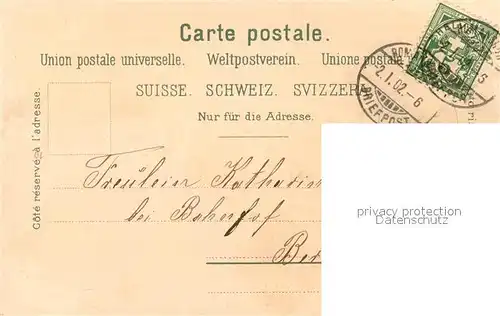 Carte postale.
Union postale universelle. Weltpostverein. Unione postale
SUISSE. SCHWEIZ. SVIZZERA
Nur für die Adresse.
Côté réservé à l'adresse.
2.I.02.-6
BRIEFPOST
Fräulein
bei Bahnhof
privacy protection
Datenschutz